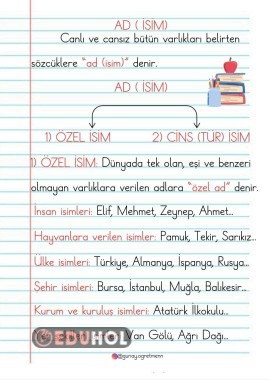 AD ( İSİM)
Canlı ve cansız bütün varlıkları belirten
sözcüklere "ad (isim)" denir.
AD ( İSİM)
1) ÖZEL İSİM 2) CİNS (TÜR) İSİM
1) ÖZEL İSİM: Dünyada tek olan, eşi ve benzeri
olmayan varlıklara verilen adlara "özel ad" denir.
İnsan isimleri: Elif, Mehmet, Zeynep, Ahmet...
Hayvanlara verilen isimler: Pamuk, Tekir, Sarıkız...
Ülke isimleri: Türkiye, Almanya, İspanya, Rusya...
Şehir isimleri: Bursa, İstanbul, Muğla, Balıkesir...
Kurum ve kuruluş isimleri: Atatürk İlkokulu...
EDUHOL
Van Gölü, Ağrı Dağı...
@gunay.ogretmenx